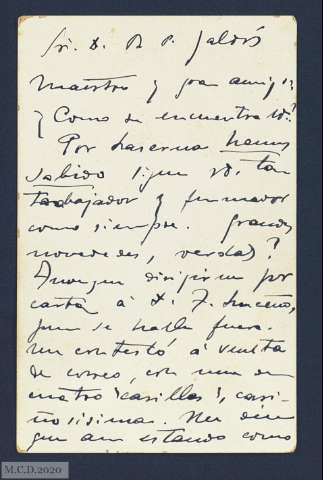 Sr. D. B. P. Galdós
Maestro y gran amigo:
¿Como se encuentra Vd.?
Por Laserna hemos
sabido sigue Vd. tan
trabajador y fumador
como siempre. Grandes
novedades, verdad?
Aunque dirigirme por
carta á D. F.
pues se halla fuera.
Me contestó á vuelta
de correo, con una de
cuatro "carillas", cari-
ñosisimas. Me dice
que aun estando como
M.C.D.2020